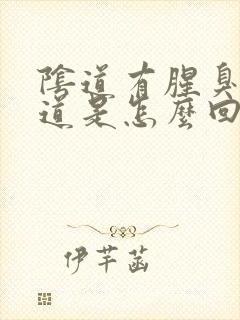 陰道有腥臭
道是怎麼回
伊芊菡